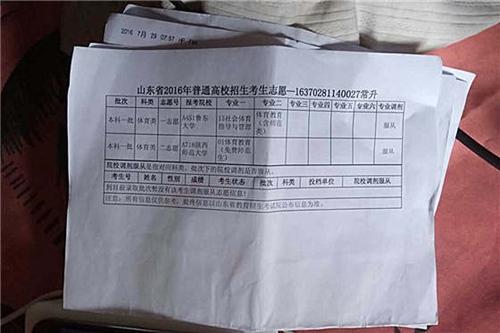 2016 7月 29 07:57
山东省2016年普通高校招生考生志愿—16370281140027常升
批次 科类 志愿号 报考院校 专业一 专业二 专业三 专业四 专业五 专业六 专业调剂
本科一批 体育类 一志愿 A451鲁东大学 13社会体育指导与管理 体育教育(含师范类) 服从
本科一批 体育类 二志愿 A718陕西师范大学 01体育教育(免费师范生) 服从
院校调剂服从是指对应科类、批次下的院校调剂是否服从。
考生号 姓名 性别 成绩 考生状态 批次 科类 投档单位 院校调剂服从
到目前录取批次暂没有该考生调剂服从志愿信息!
注意：所有信息仅供参考，最终信息以山东省教育招生考试院公布信息为准。